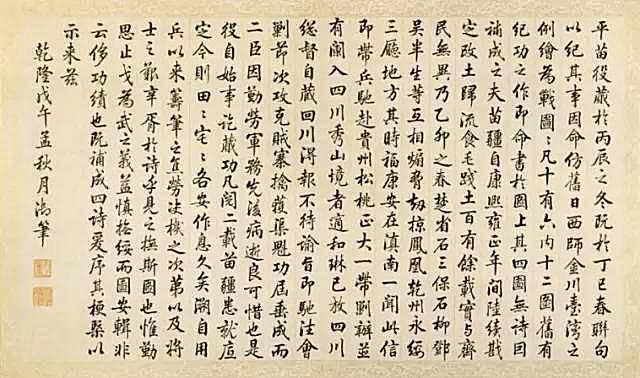 平苗役蕆於丙辰之冬既於丁巳春聯句
以紀其事因命仿舊日西師金川臺灣之
例繪為戰圖〻凡十有六內十二圖舊有
紀功之作即命書於圖上其四圖無詩因
補成之夫苗疆自康熙雍正年間陸續戡
定改土歸流食毛踐土百有餘載實與齊
民無異乃乙卯之春楚省石三保石柳鄧
吳半生等互相煽脅劫掠鳳凰乾州永綏
三廳地方其時福康安在滇南一聞此信
即帶兵馳赴貴州松桃正大一帶剿辦並
有闌入四川秀山境者適和琳已放四川
總督自藏回川得報不待諭旨即馳往會
剿節次攻克賊寨擒獲渠魁功屆垂成而
二臣因勤勞軍務先後病逝良可惜也是
役自始事訖蕆功凡閱二載苗疆悉就底
定今則田〻宅〻各安作息久矣溯自用
兵以來籌筆之宵勞決機之次第以及將
士之艱辛胥於詩乎見之撫斯圖也惟勤
思止戈為武之義益慎綏而圖安輯非
云侈功績也既補成四詩爰序其梗槩以
示來茲
乾隆戊午孟秋月御筆